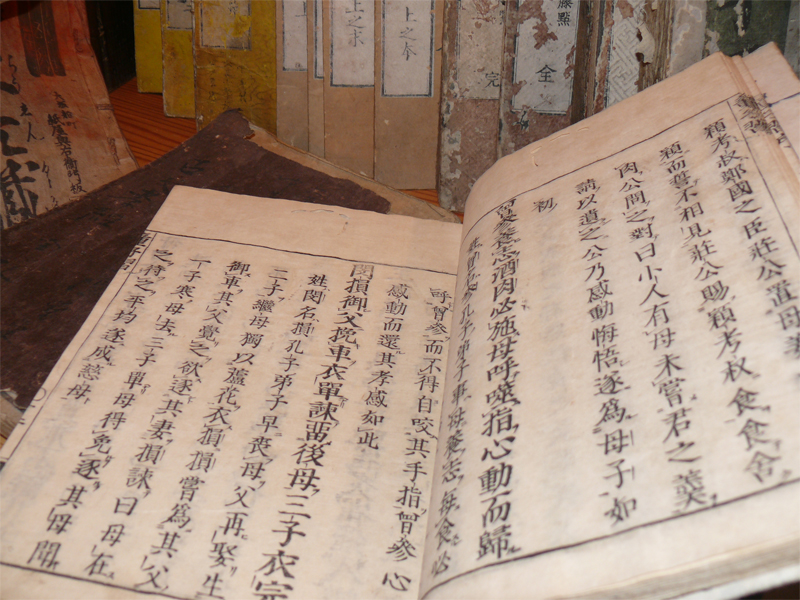 頴考叔鄭國之臣莊公置母
頴而誓不相見莊公賜頴考叔食食舍
肉公問之對曰小人有母未嘗君之羹
請以遺之公乃感動悔悟遂為母子如
初
曾參養志酒肉必施母呼噬指心動而歸
姓曾名參孔子弟子事母養志每食必
呼曾參而不得自咬其手指曾參心
感動而還其孝感如此
閔損御父挽車衣單諫畱後母三子衣完
姓閔名損孔子弟子早喪母父再娶生
二子繼母獨以蘆花衣損損嘗為其父
御車其父覺之欲逐其妻損諫曰母在
一子寒母去三子單母得免逐其母聞
之待之平均遂成慈母
藤點
全
完
上之本
上之末